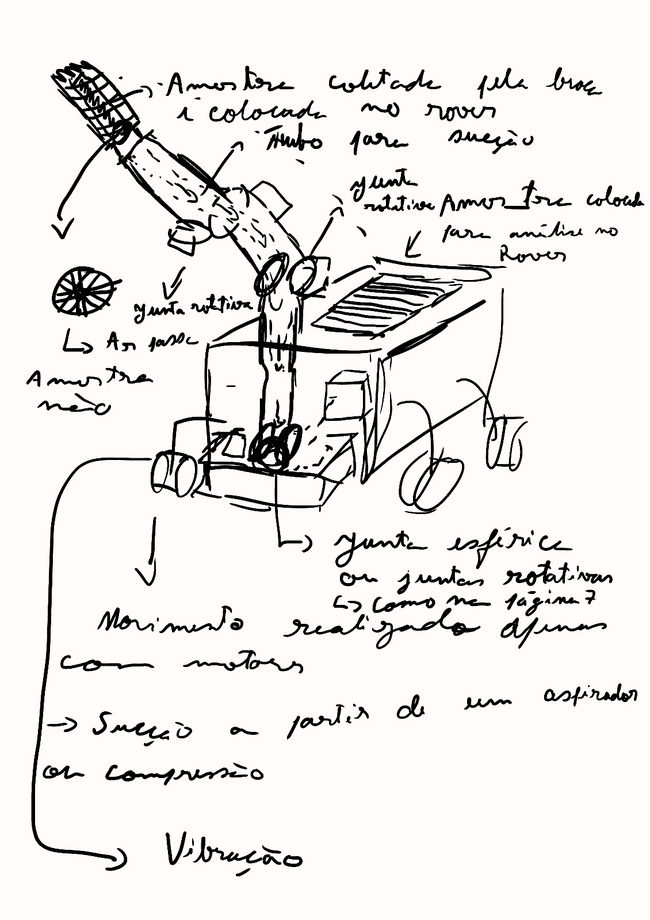 Amostra coletada pela broca
é colocada no rover
Tubo para sucção
junta
rotativa
Amostra colocada
para análise no
Rover
junta rotativa
Ar passa
Amostra
não
junta esférica
ou juntas rotativas
↳ como na página 7
Movimento realizado apenas
com motores
→ Sucção a partir de um aspirador
ou compressão
Vibração